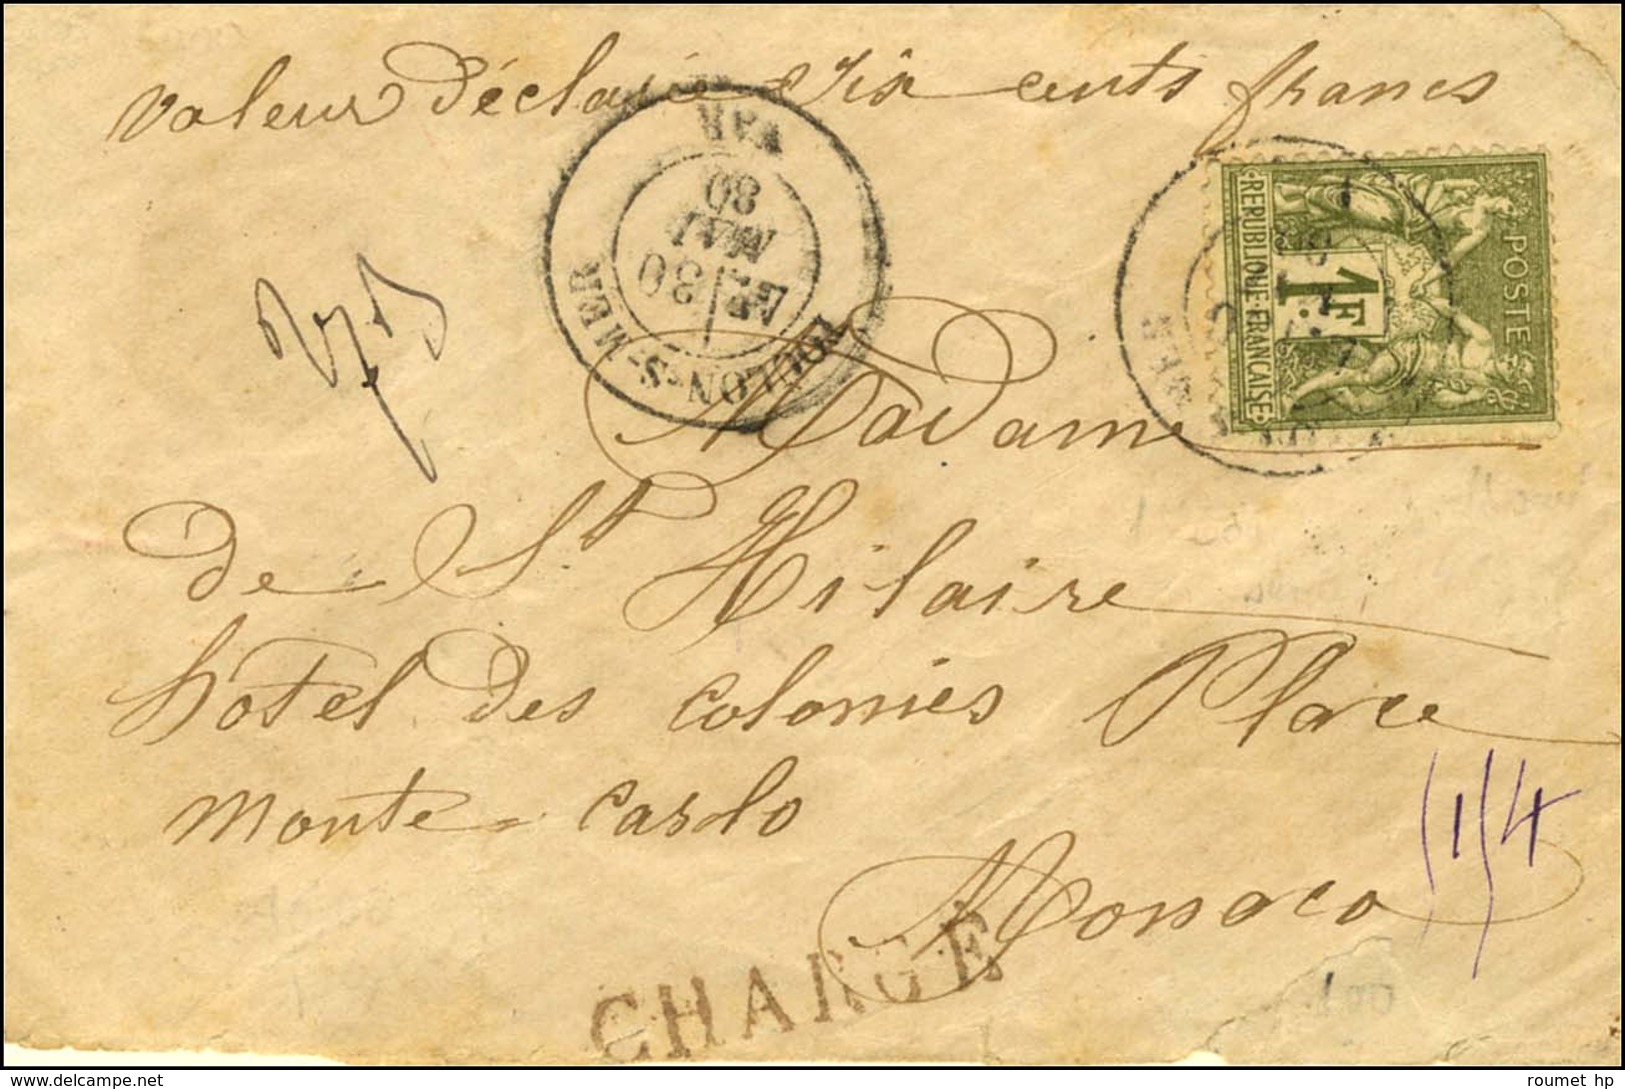 Valeur déclarée Six cents francs
TOULON-S-MER
30
MAI
80
VAR
POSTE
1F
REPUBLIQUE FRANÇAISE
Madame
de St Hilaire
hotel des colonies Place
Monte-Carlo
Monaco
CHARGÉ
roumet hp